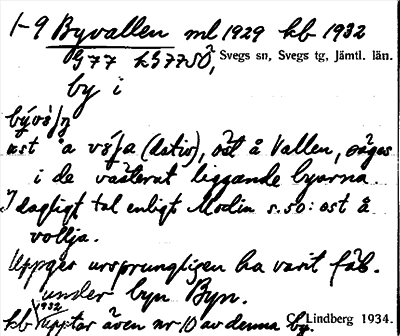 1-9 Byvallen ml 1929 kb 1932
G77 kG77SÖ, Svegs sn, Svegs tg, Jämtl. län.
by i
öst å Vallen, säges
i de västerut liggande byarna
I dagligt tal enligt Modin s. 50: ost å
vollja.
Uppges ursprungligen ha varit fäb.
under byn Byn.
kb 1932 upptar även nr 10 av denna by.
C. Lindberg 1934.